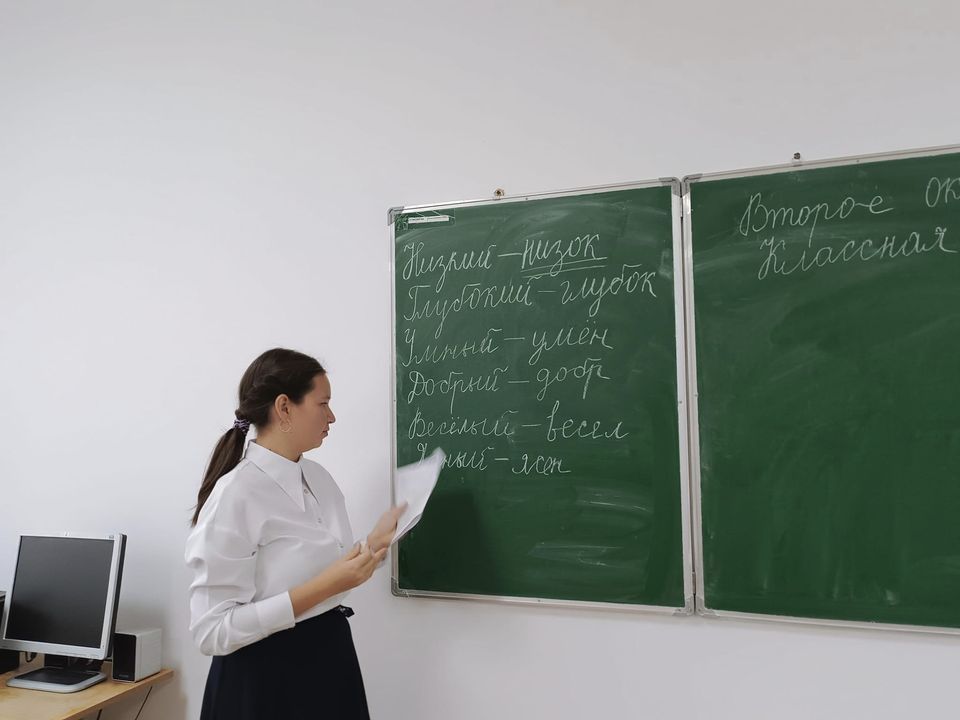 Низкий – низок
Глубокий – глубок
Умный – умён
Добрый – добр
Весёлый – весел
– ясен
Второе
Классная